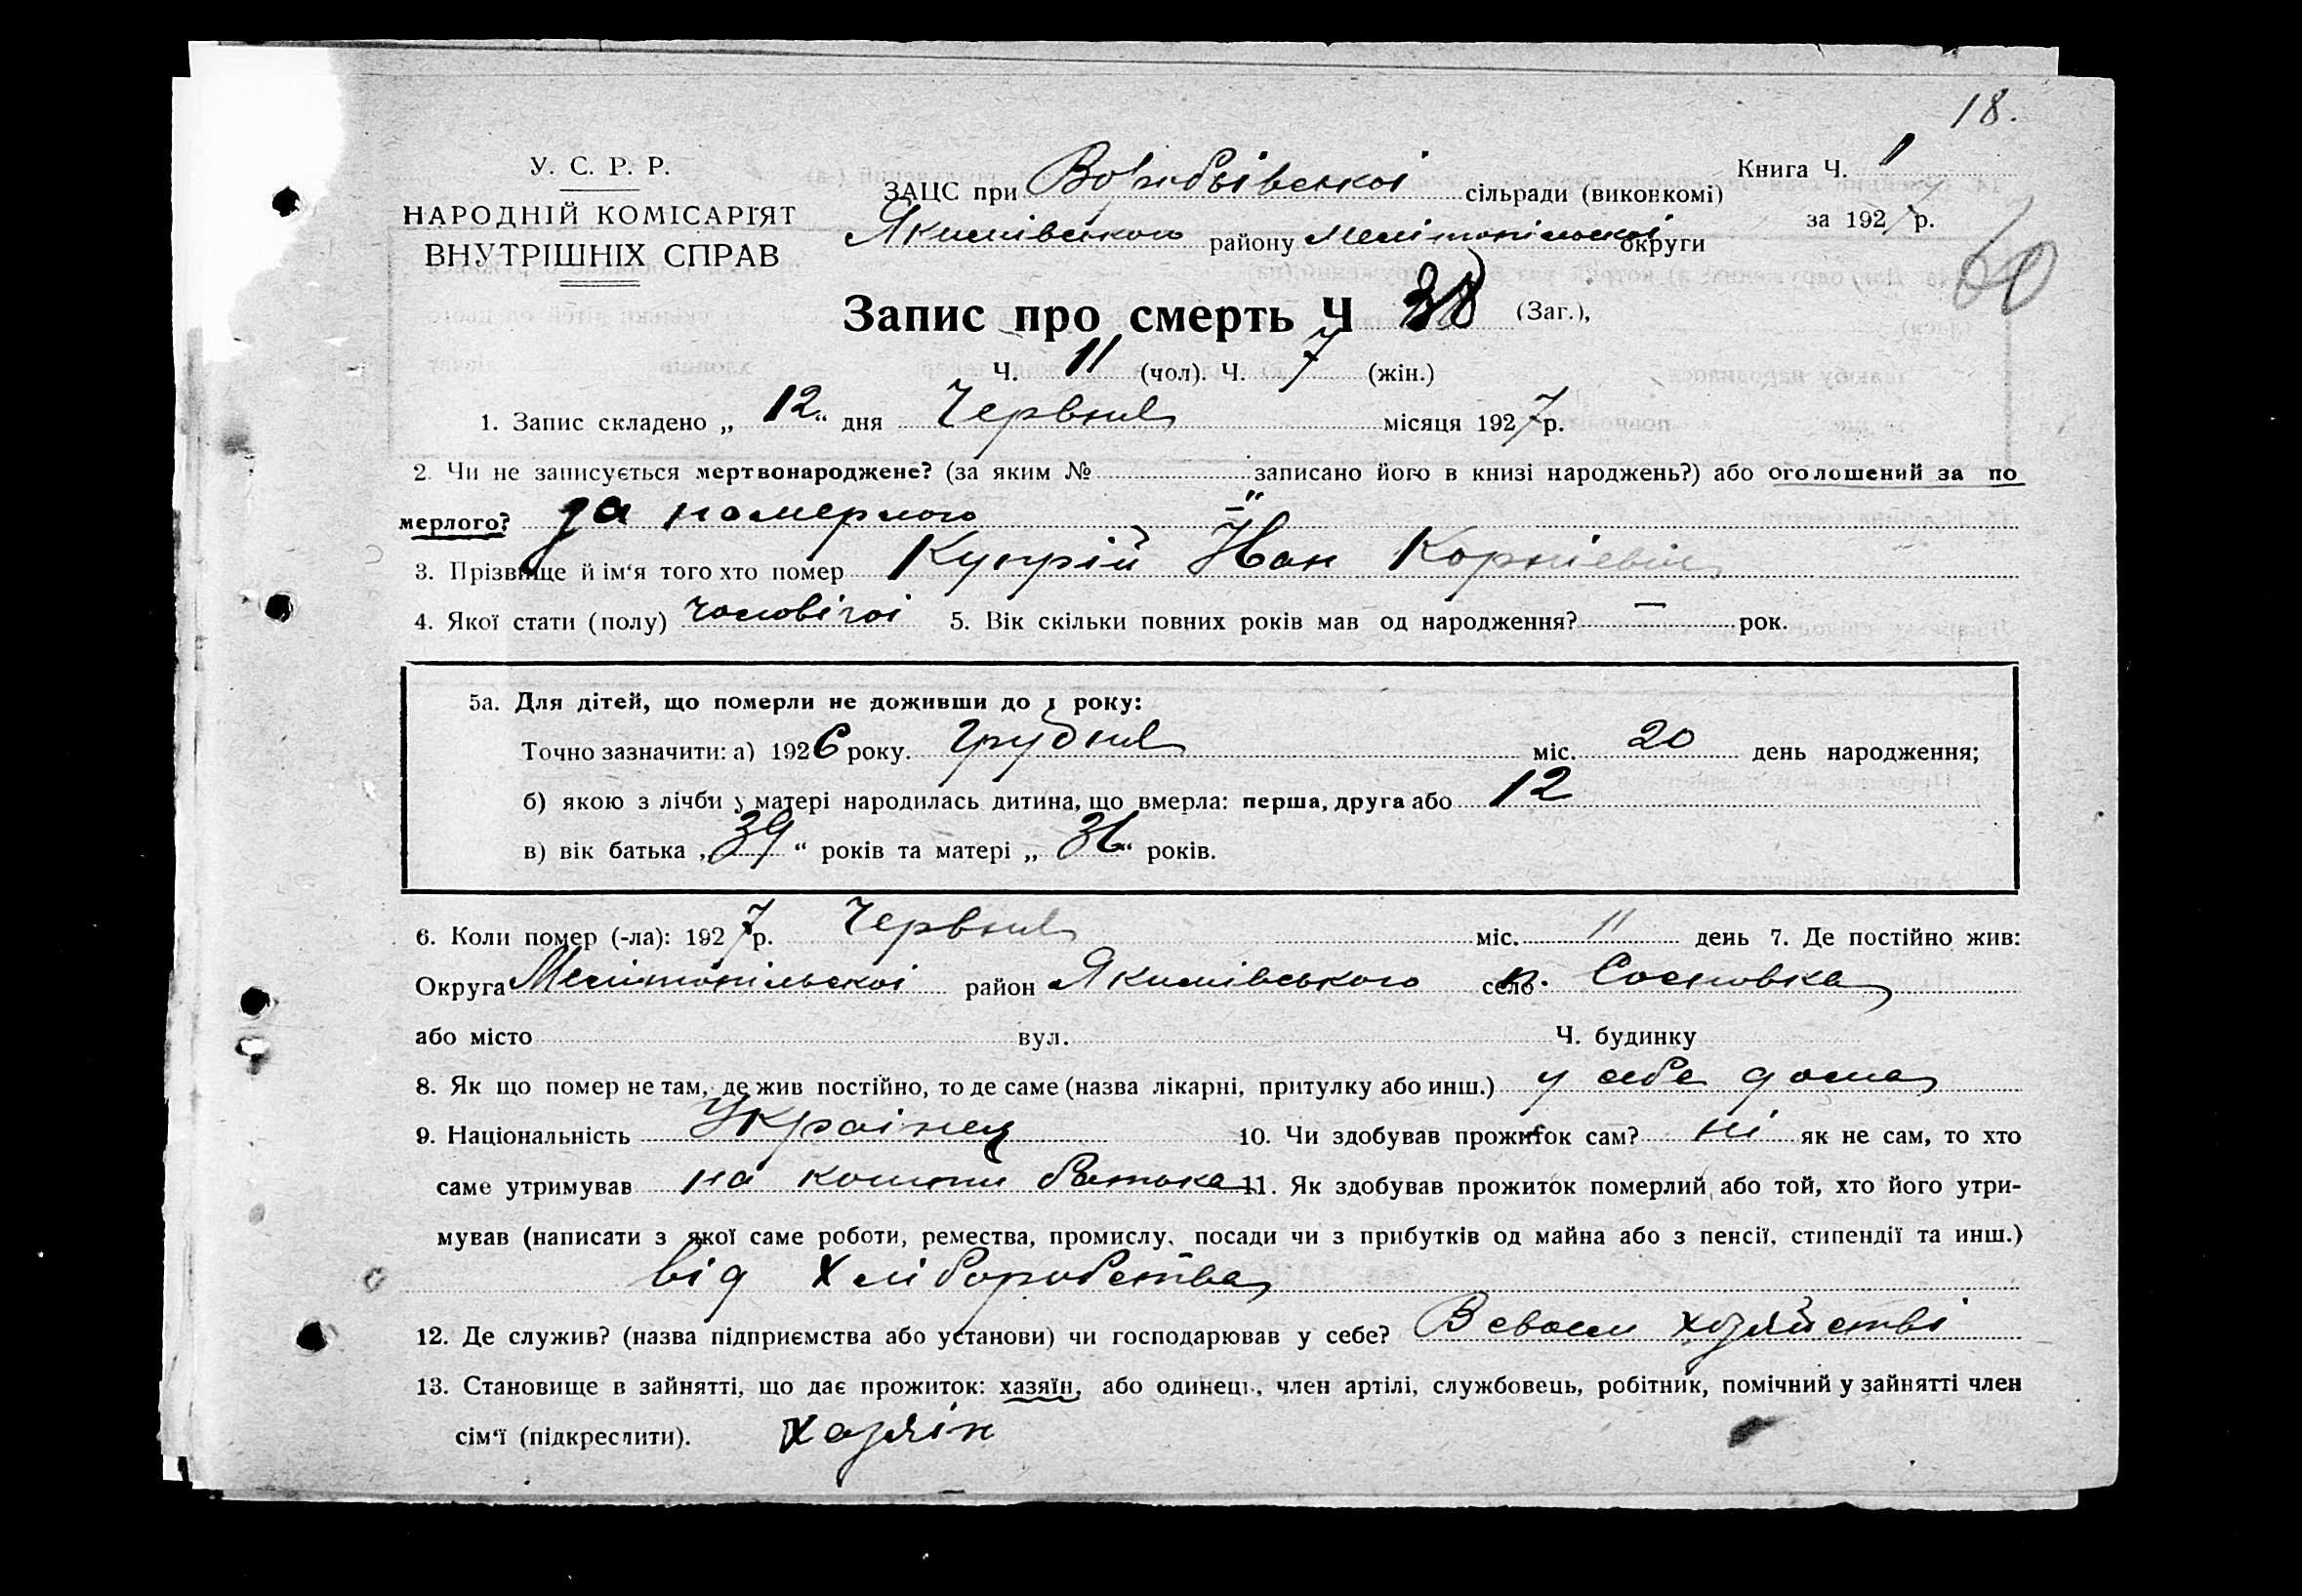 18.
У. С. Р. Р.
НАРОДНІЙ КОМІСАРІЯТ
ВНУТРІШНІХ СПРАВ
ЗАЦС при Воробьівської сільради (виконкомі)
Якимівського району Мелітопільської округи
Книга Ч. 1
за 1927 р.
60
Запис про смерть Ч (Заг.),
Ч. 11 (чол). Ч. 7 (жін.)
1. Запис складено „ 12 “ дня Червня місяця 1927 р.
2. Чи не записується мертвонароджене? (за яким № записано його в книзі народжень?) або оголошений за по
мерлого? за померлого "
3. Прізвище й ім‘я того хто помер Купрій Іван Корнієвич
4. Якої стати (полу) чоловічоі 5. Вік скільки повних років мав од народження? — рок.
5а. Для дітей, що померли не доживши до 1 року:
Точно зазначити: а) 1926 року. Грудня міс. 20 день народження;
б) якою з лічби у матері народилась дитина, що вмерла: перша, друга або 12
в) вік батька „ 39 “ років та матері „ 36 “ років.
6. Коли помер (-ла): 1927 р. Червня міс. 11 день 7. Де постійно жив:
Округа Мелітопільскоі район Якимівського село п. Сосновка
або місто вул. Ч. будинку
8. Як що помер не там, де жив постійно, то де саме (назва лікарні, притулку або инш.) у себе дома
9. Національність Украінец 10. Чи здобував прожиток сам? ні як не сам, то хто
саме утримував на кошти батька 11. Як здобував прожиток померлий або той, хто його утри-
мував (написати з якої саме роботи, ремества, промислу, посади чи з прибутків од майна або з пенсії, стипендії та инш.)
від Хліборобства
12. Де служив? (назва підприємства або установи) чи господарював у себе? В своем хозяйстві
13. Становище в зайнятті, що дає прожиток: хазяїн, або одинець, член артілі, службовець, робітник, помічний у зайнятті член
сім‘ї (підкреслити). Хазяін